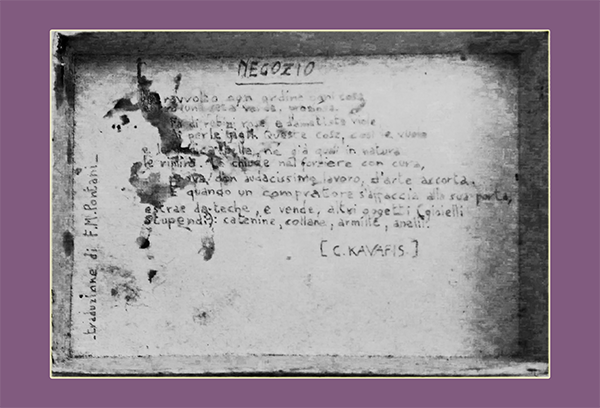 NEGOZIO
ravvolto con ordine ogni cosa
una seta verde, preziosa.
di rubini rose e d'ametiste viole
di perle gigli. Queste cose, così le vuole
e le bella, né già quali in natura
le rimira. Le chiude nel forziere con cura,
prova, con audacissimo lavoro, d'arte accorta.
E quando un compratore s'affaccia alla sua porta,
estrae da teche, e vende, altri oggetti (gioielli
stupendi): catenine, collane, armille, anelli.
[C. KAVAFIS.]
-traduzione di F.M. Pontani-